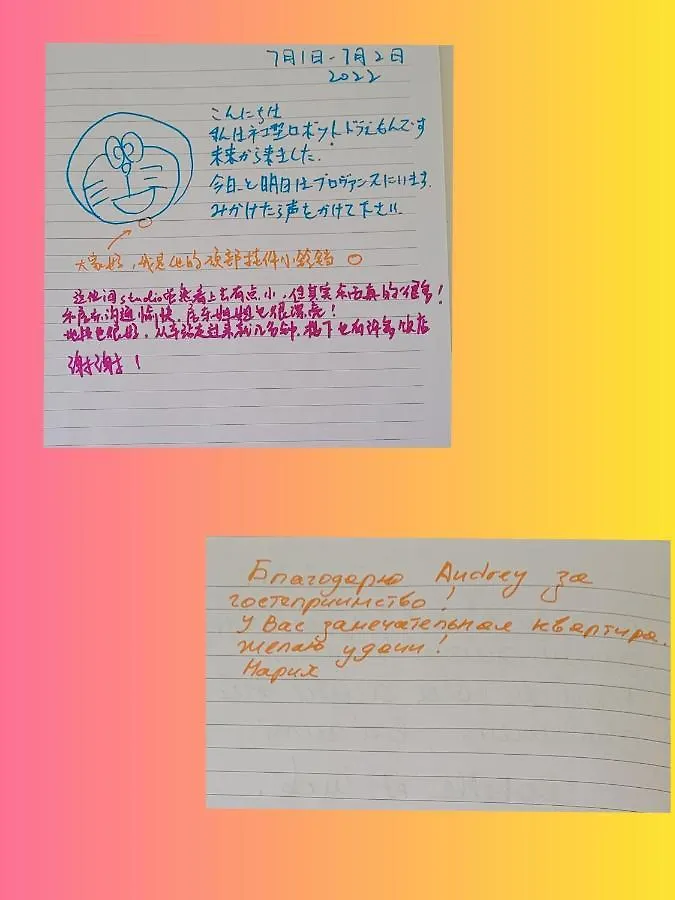 7月1日-7月2日
2022
こんにちは
私はネコ型ロボットドラえもんです
未来から来ました.
今日と明日はプロヴァンスにいます.
みかけたら声をかけて下さい.
大家好,我是他的颈部挂件小铃铛
这位间studio虽然看上去有点小,但其实东西真的很多!
和房东沟通愉快,房东姐姐也很漂亮!
地段也很好,从车站走过来就几分钟.楼下也有许多饭店
谢谢!
Благодарю Audrey за
гостеприимство!
У Вас замечательная квартира.
Желаю удачи!
Нарих